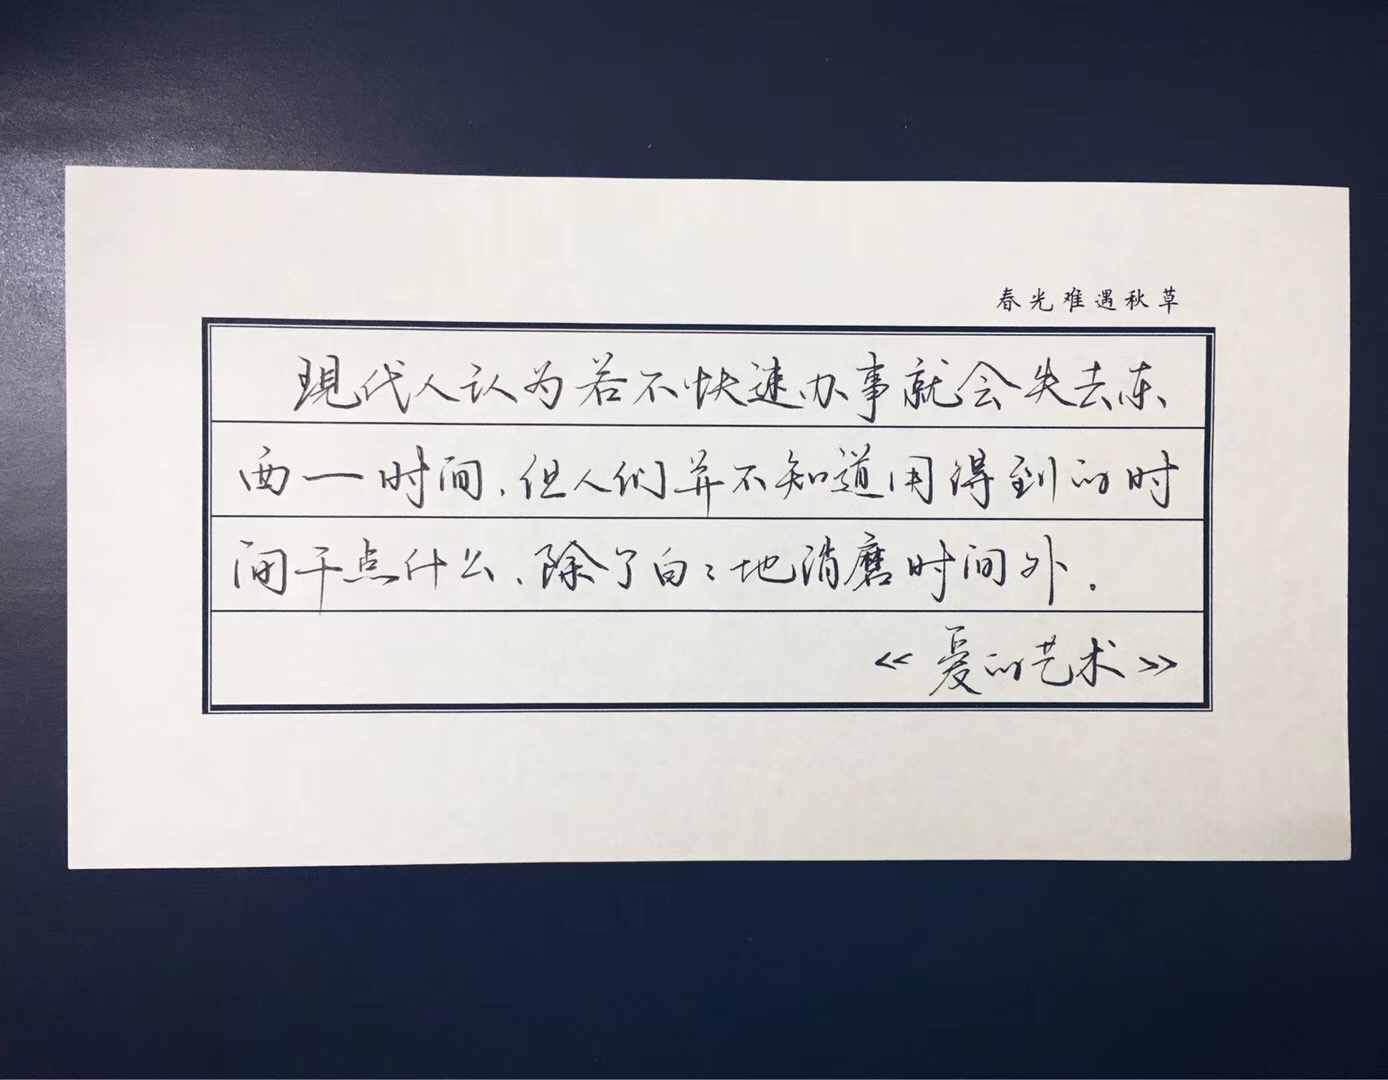 春光难遇秋草
現代人认为若不快速办事就会失去东
西一时间，但人们并不知道用得到的时
间干点什么，除了白々地消磨时间外．
《爱的艺术》